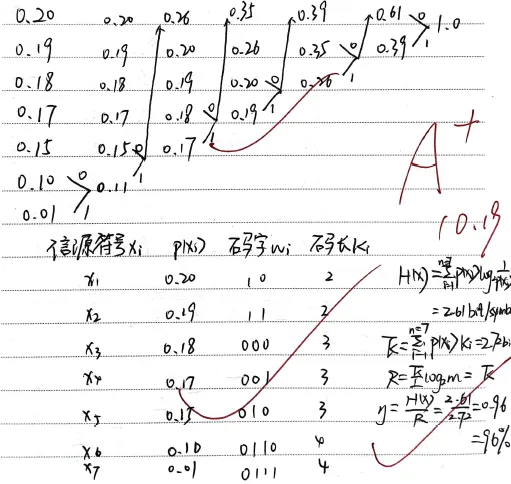 0.20 0.20 0.26 0.35 0.39 0.61 0 1.0
0.19 0.19 0.20 0.26 0.35 0 0.39 1
0.18 0.18 0.19 0.20 0 0.26 1
0.17 0.17 0.18 0 0.19 1
0.15 0.15 0 0.17 1
0.10 0 0.11 1
0.01 1
A+
10.19
信源符号xi p(xi) 码字wi 码长ki
x1 0.20 10 2
x2 0.19 11 2
x3 0.18 000 3
x4 0.17 001 3
x5 0.15 010 3
x6 0.10 0110 4
x7 0.01 0111 4
=2.61bit/symb
R=log2m=K
η=H(x)/R=2.61/2.72=0.96
=96%